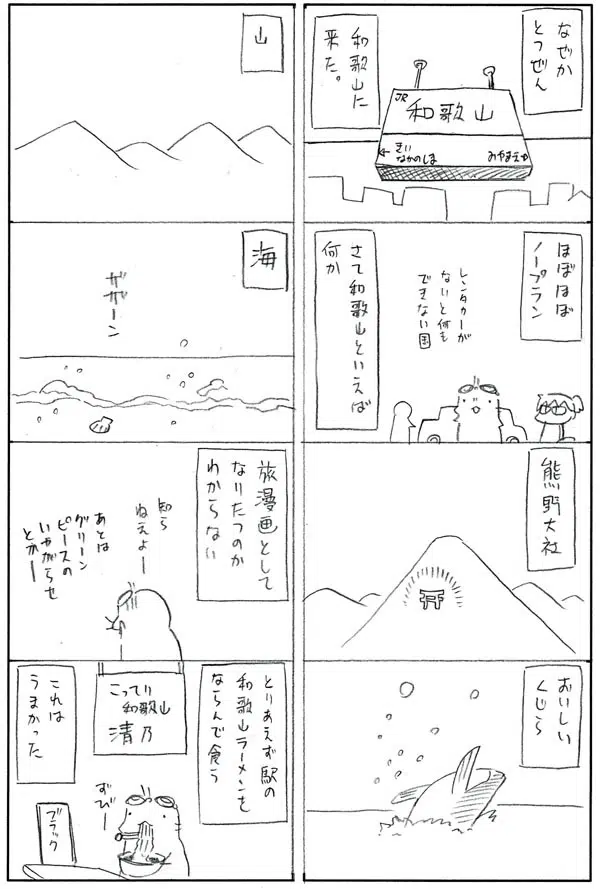 なぜか
とつぜん
和歌山に
来た。
JR
和歌山
←きい
なかのしま
みやまえ→
ほぼほぼ
ノープラン
レンタカーが
ないと何も
できない国
さて和歌山といえば
何か
熊野大社
おいしい
くじら
山
海
ザザーン
旅漫画として
なりたつのか
わからない
知ら
ねえよー
あとは
グリーン
ピースの
いやがらせ
とかー
とりあえず駅の
和歌山ラーメンを
ならんで食う
こってり
和歌山
清乃
これは
うまかった
ずびー
ブラック